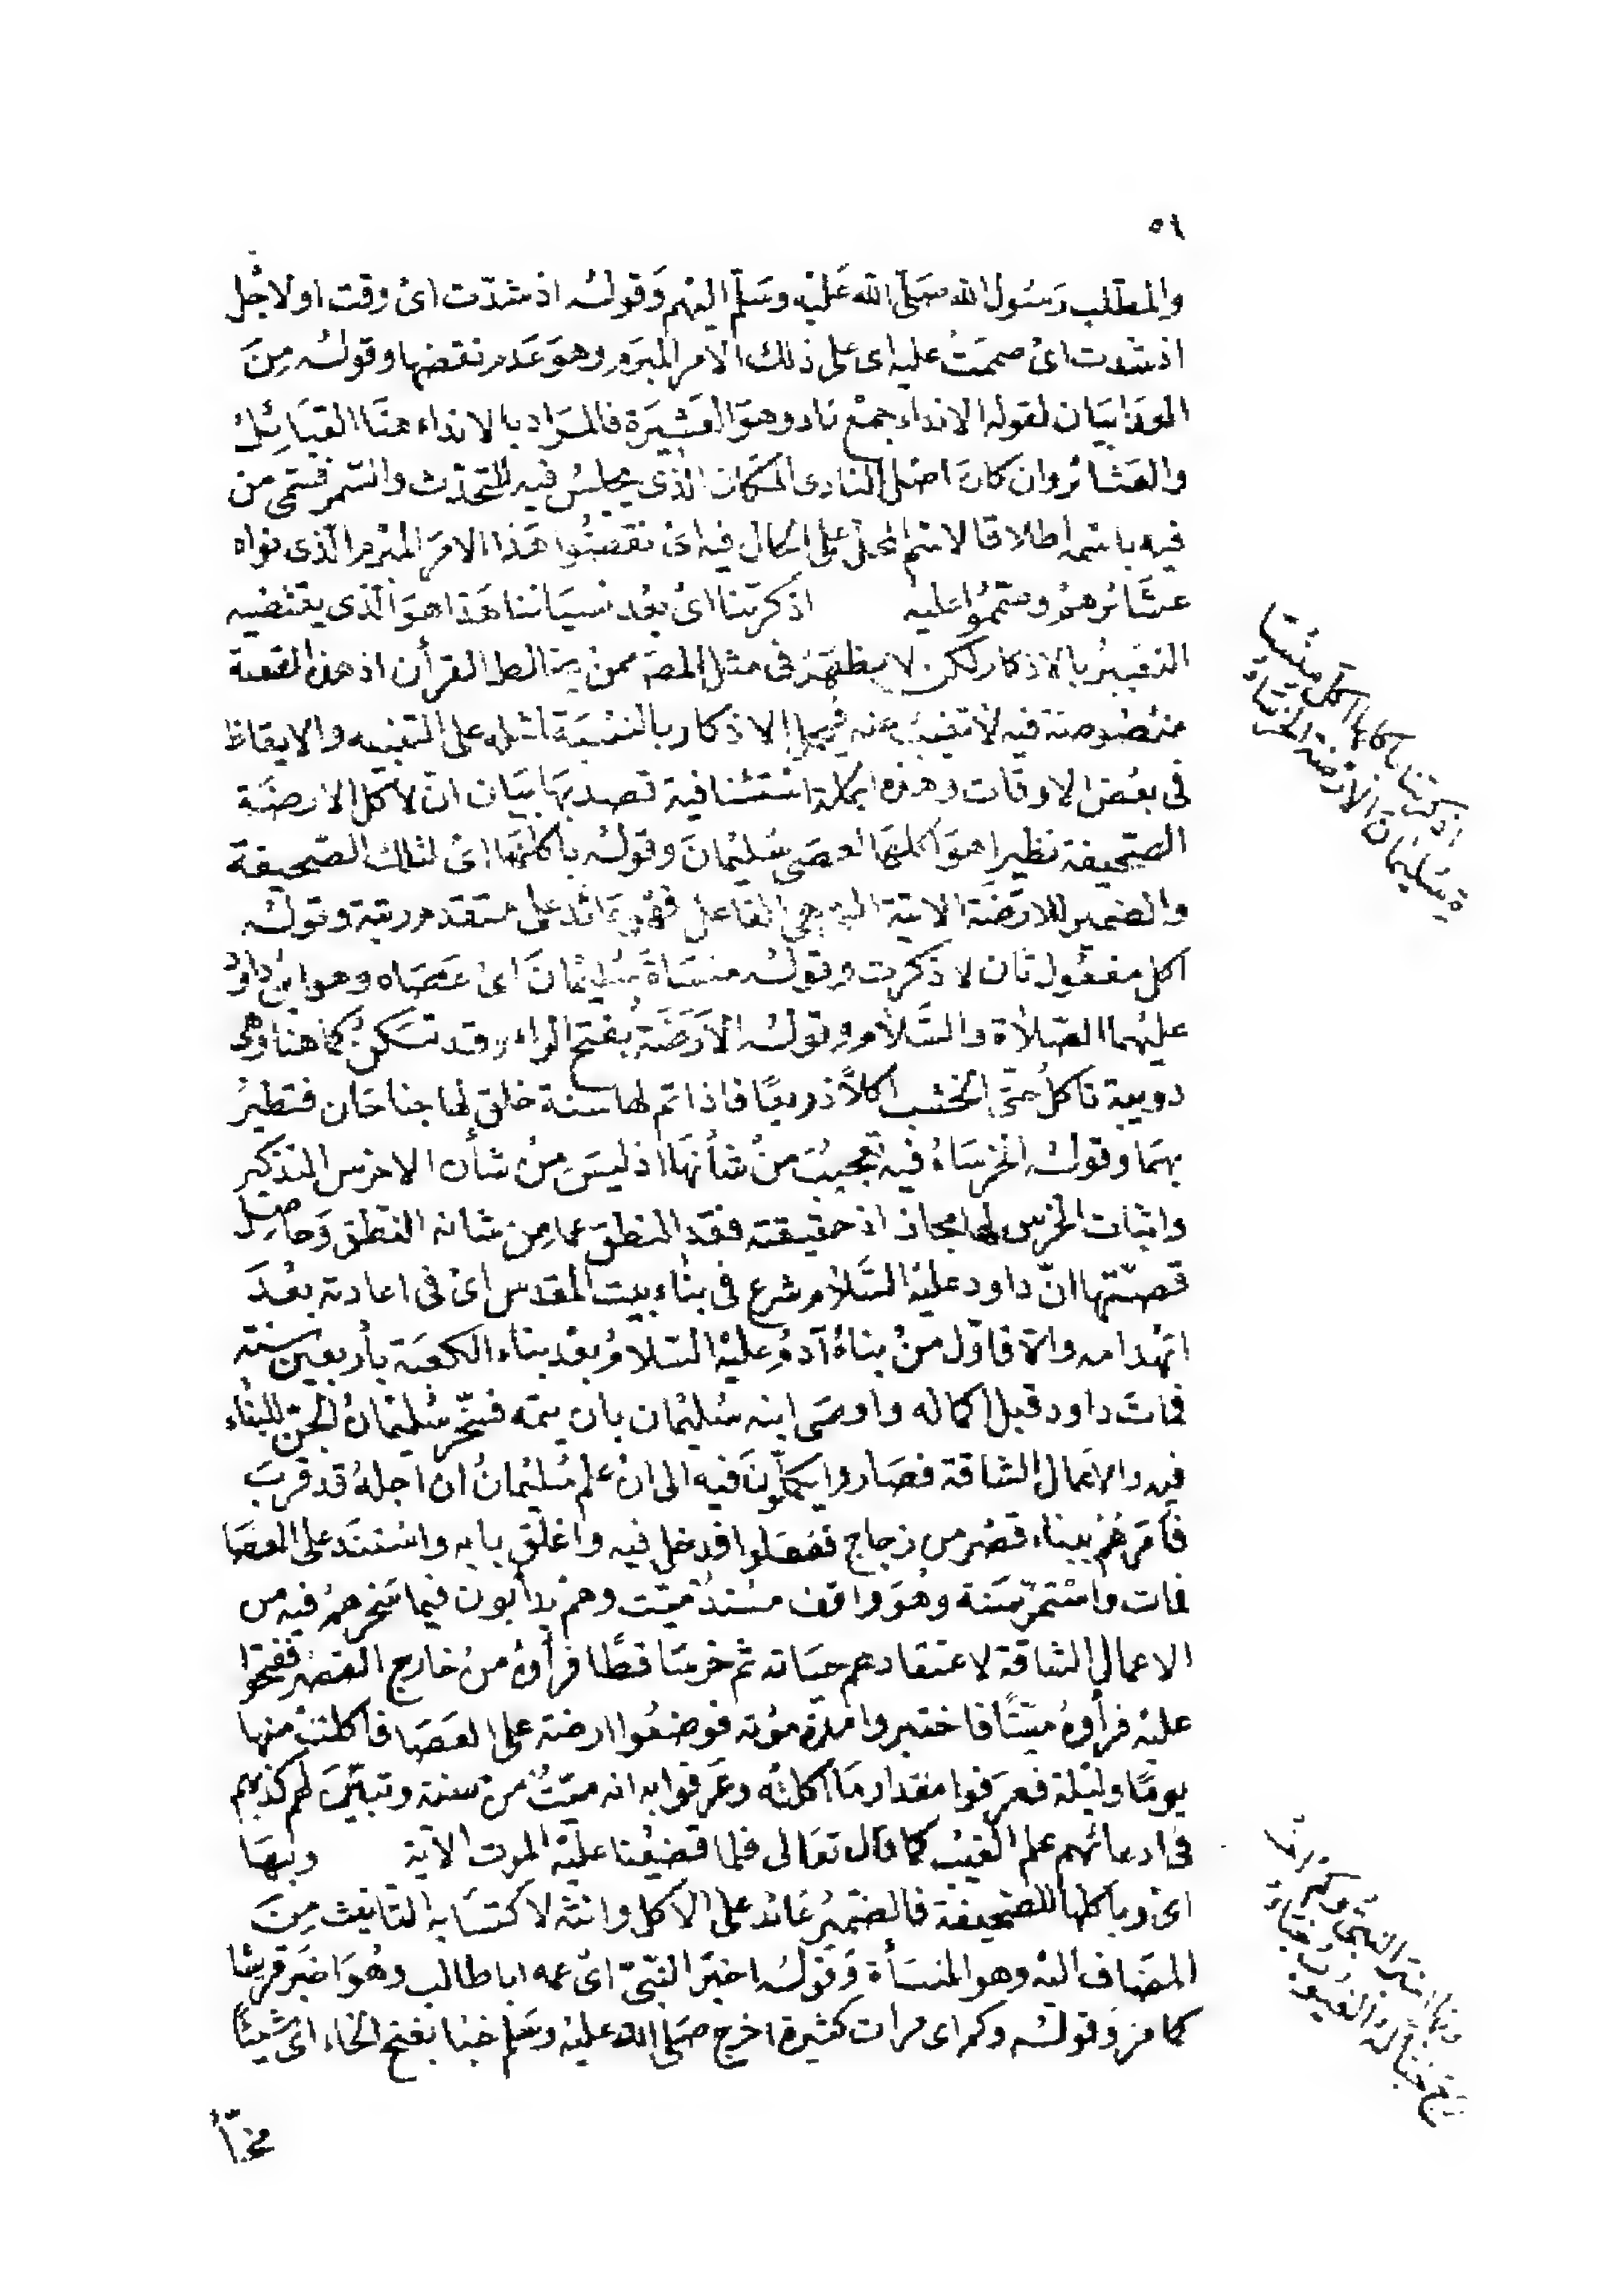 ٥٦
والمطلب رسول الله صلى الله عليه وسلم اليهم وقوله اذ شدت اى وقت او لاجل
اذ شدت اى صممت عليه اى على ذلك الامر المبرم وهو عدم نقضها وقوله من
العدا بيان لقوله الانداء جمع ناد وهو العشيرة فالمراد بالانداء هنا القبائل
والعشائر وان كان اصل النادى المكان الذى يجلس فيه للتحدث والسمر فسمى من
فيه باسمه اطلاقا لاسم المحل على الحال فيه اى نقضوا هذا الامر المبرم الذى نواه
عشائرهم وصمموا عليه اذكرتنا اى بعد نسياننا هذا هو الذى يقتضيه
التعبير بالاذكار لكن لا يظهر فى مثل المصـ ممن يخالط القرأن اذ هذه القصة
منصوصة فيه لا تغيب عنه فيحمل الاذكار بالنسبة لمثله على التنبيه والايقاظ
فى بعض الاوقات وهذه الجملة استئنافية قصد بها بيان ان لاكل الارضة
الصحيفة نظيرا هو اكلها لعصى سليمان وقوله باكلها اى لتلك الصحيفة
والضمير للارضة الاتية التى هى الفاعل فهو عائد على متقدم رتبة وقوله
اكل مفعول ثان لاذكرت وقوله منساة سليمان اى عصاه وهو ابن داود
عليهما الصلاة والسلام وقوله الارضة بفتح الراء وقد تسكن كما هنا وهى
دويبة تاكل حتى الخشب اكلا ذريعا فاذا تم لها سنة خلق لها جناحان فتطير
بهما وقوله الخرساء فيه تعجيب من شأنها اذ ليس من شأن الاخرس التذكير
واثبات الخرس لها مجاز اذ حقيقته فقد النطق عما من شانه النطق وحاصل
قصتها ان داود عليه السلام شرع فى بناء بيت المقدس اى فى اعادته بعد
انهدامه والا فاول من بناه آدم عليه السلام بعد بناء الكعبة بأربعين سنة
فمات داود قبل اكماله واوصى ابنه سليمان بان يتمه فسخر سليمان الجن للبناء
فيه والاعمال الشاقة فصاروا يعملون فيه الى ان علم سليمان ان اجله قد قرب
فأمرهم ببناء قصر من زجاج ففعلوا فدخل فيه واغلق بابه واستند على العصا
فمات واستمر سنة وهو واقف مسند ميت وهم يدأبون فيما سخرهم فيه من
الاعمال الشاقة لاعتقادهم حياته ثم خر ساقطا فرأوه من خارج القصر ففتحوا
عليه فرأوه ميتا فاختبروا مدة موته فوضعوا ارضة على العصا فاكلت منها
يوما وليلة فعرفوا مقدار ما اكلته وعرفوا به انه ميت من سنة وتبين لهم كذبهم
فى ادعائهم علم الغيب كما قال تعالى فلما قضينا عليه الموت الآية وبها
اى وباكلها للصحيفة فالضمير عائد على الاكل وانثه لاكتسابه التانيث من
المضاف اليه وهو المنسأة وقوله اخبر النبى اى عمه ابا طالب وهو اخبر قريشا
كما مر وقوله وكم اى مرات كثيرة اخرج صلى الله عليه وسلم خبا بفتح الخاء اى شيئا
مخبأ
اذكرتنا باكلها اكل منسا
ة سليمان الارضة الخرساء
وبها اخبر النبى وكم اخـ
رج خبأ له الغيوب خباء